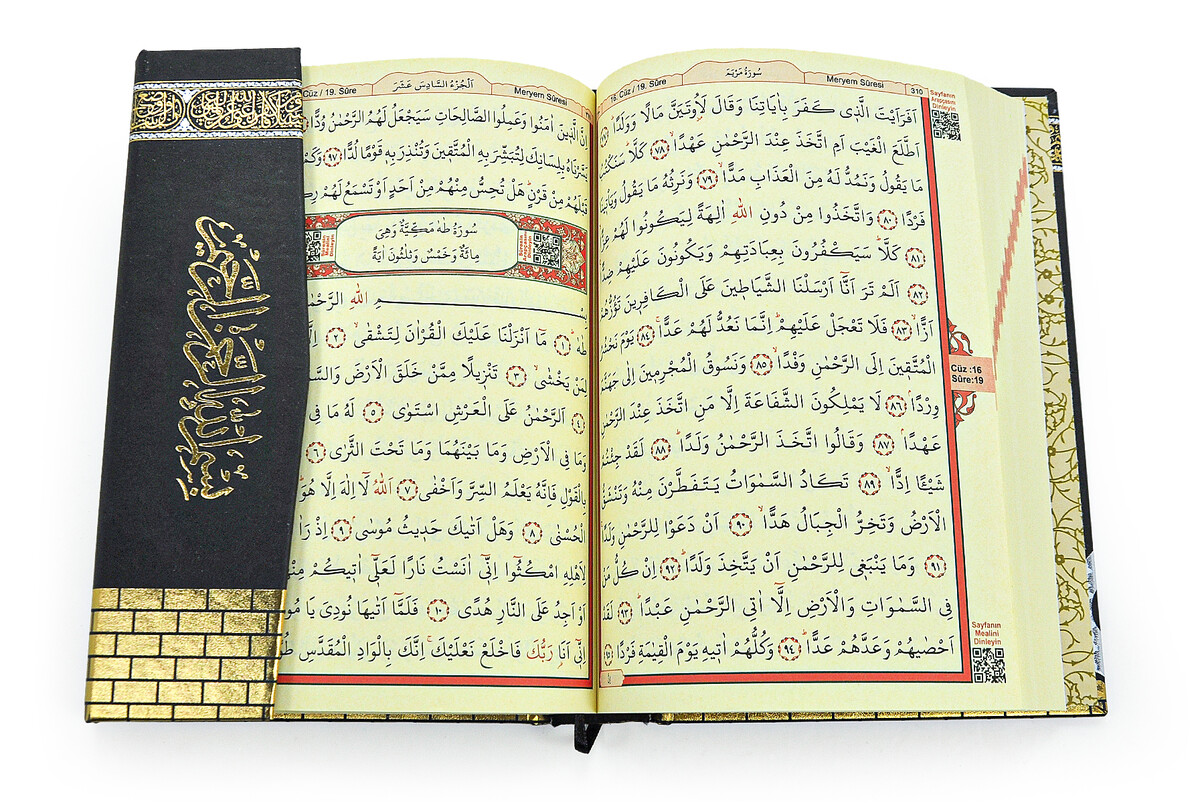 310
Meryem Sûresi
سُورَةُ مَرْيَمَ
16. Cüz / 19. Sûre
Sayfanın
Arapçasını
Dinleyin
اَفَرَاَيْتَ الَّذ۪ي كَفَرَ بِاٰيَاتِنَا وَقَالَ لَاُو۫تَيَنَّ مَالًا وَوَلَدًاۜ
اَطَّلَعَ الْغَيْبَ اَمِ اتَّخَذَ عِنْدَ الرَّحْمٰنِ عَهْدًاۙ ﴿٧٨﴾ كَلَّاۜ سَنَكْتُبُ
مَا يَقُولُ وَنَمُدُّ لَهُ مِنَ الْعَذَابِ مَدًّاۙ ﴿٧٩﴾ وَنَرِثُهُ مَا يَقُولُ وَيَأْت۪ينَا
فَرْدًا ﴿٨٠﴾ وَاتَّخَذُوا مِنْ دُونِ اللّٰهِ اٰلِهَةً لِيَكُونُوا لَهُمْ
﴿٨١﴾ كَلَّاۜ سَيَكْفُرُونَ بِعِبَادَتِهِمْ وَيَكُونُونَ عَلَيْهِمْ
﴿٨٢﴾ اَلَمْ تَرَ اَنَّٓا اَرْسَلْنَا الشَّيَاط۪ينَ عَلَى الْكَافِر۪ينَ تَؤُزُّهُمْ
اَزًّاۙ ﴿٨٣﴾ فَلَا تَعْجَلْ عَلَيْهِمْۜ اِنَّمَا نَعُدُّ لَهُمْ عَدًّاۚ ﴿٨٤﴾ يَوْمَ نَحْشُرُ
الْمُتَّق۪ينَ اِلَى الرَّحْمٰنِ وَفْدًاۙ ﴿٨٥﴾ وَنَسُوقُ الْمُجْرِم۪ينَ اِلٰى جَهَنَّمَ
وِرْدًاۢ ﴿٨٦﴾ لَا يَمْلِكُونَ الشَّفَاعَةَ اِلَّا مَنِ اتَّخَذَ عِنْدَ الرَّحْمٰنِ
عَهْدًاۢ ﴿٨٧﴾ وَقَالُوا اتَّخَذَ الرَّحْمٰنُ وَلَدًاۜ ﴿٨٨﴾ لَقَدْ جِئْتُمْ
شَيْـًٔا اِدًّاۙ ﴿٨٩﴾ تَكَادُ السَّمٰوَاتُ يَتَفَطَّرْنَ مِنْهُ وَتَنْشَقُّ
الْاَرْضُ وَتَخِرُّ الْجِبَالُ هَدًّاۙ ﴿٩٠﴾ اَنْ دَعَوْا لِلرَّحْمٰنِ وَلَدًاۚ
﴿٩١﴾ وَمَا يَنْبَغ۪ي لِلرَّحْمٰنِ اَنْ يَتَّخِذَ وَلَدًاۜ ﴿٩٢﴾ اِنْ كُلُّ مَنْ
فِي السَّمٰوَاتِ وَالْاَرْضِ اِلَّٓا اٰتِي الرَّحْمٰنِ عَبْدًاۜ ﴿٩٣﴾ لَقَدْ
اَحْصٰيهُمْ وَعَدَّهُمْ عَدًّاۜ ﴿٩٤﴾ وَكُلُّهُمْ اٰت۪يهِ يَوْمَ الْقِيٰمَةِ فَرْدًا ﴿٩٥﴾
Cüz :16
Sûre:19
Sayfanın
Mealini
Dinleyin
Meryem Sûresi
اَلْجُزْءُ السَّادِسَ عَشَرَ
Cüz / 19. Sûre
اِنَّ الَّذ۪ينَ اٰمَنُوا وَعَمِلُوا الصَّالِحَاتِ سَيَجْعَلُ لَهُمُ الرَّحْمٰنُ وُدًّا
يَسَّرْنَاهُ بِلِسَانِكَ لِتُبَشِّرَ بِهِ الْمُتَّق۪ينَ وَتُنْذِرَ بِه۪ قَوْمًا لُدًّا ﴿٩٧﴾ وَكَمْ
قَبْلَهُمْ مِنْ قَرْنٍۜ هَلْ تُحِسُّ مِنْهُمْ مِنْ اَحَدٍ اَوْ تَسْمَعُ لَهُمْ
سُورَةُ طٰهٰ مَكِّيَّةٌ وَهِيَ
مِائَةٌ وَخَمْسٌ وَثَلٰثُونَ اٰيَةً
بِسْمِ اللّٰهِ
طٰهٰۜ ﴿١﴾ مَٓا اَنْزَلْنَا عَلَيْكَ الْقُرْاٰنَ لِتَشْقٰىۙ ﴿٢﴾
لِمَنْ يَخْشٰىۙ ﴿٣﴾ تَنْز۪يلًا مِمَّنْ خَلَقَ الْاَرْضَ
﴿٤﴾ اَلرَّحْمٰنُ عَلَى الْعَرْشِ اسْتَوٰى ﴿٥﴾ لَهُ مَا فِي
وَمَا فِي الْاَرْضِ وَمَا بَيْنَهُمَا وَمَا تَحْتَ الثَّرٰى ﴿٦﴾
بِالْقَوْلِ فَاِنَّهُ يَعْلَمُ السِّرَّ وَاَخْفٰى ﴿٧﴾ اَللّٰهُ لَٓا اِلٰهَ اِلَّا هُوَۜ
الْحُسْنٰى ﴿٨﴾ وَهَلْ اَتٰيكَ حَد۪يثُ مُوسٰىۢ ﴿٩﴾ اِذْ
لِاَهْلِهِ امْكُثُٓوا اِنّ۪ٓي اٰنَسْتُ نَارًا لَعَلّ۪ٓي اٰت۪يكُمْ
اَوْ اَجِدُ عَلَى النَّارِ هُدًى ﴿١٠﴾ فَلَمَّٓا اَتٰيهَا نُودِيَ يَا
اِنّ۪ٓي اَنَا۬ رَبُّكَ فَاخْلَعْ نَعْلَيْكَۚ اِنَّكَ بِالْوَادِ الْمُقَدَّسِ
بسم الله الرحمن الرحيم